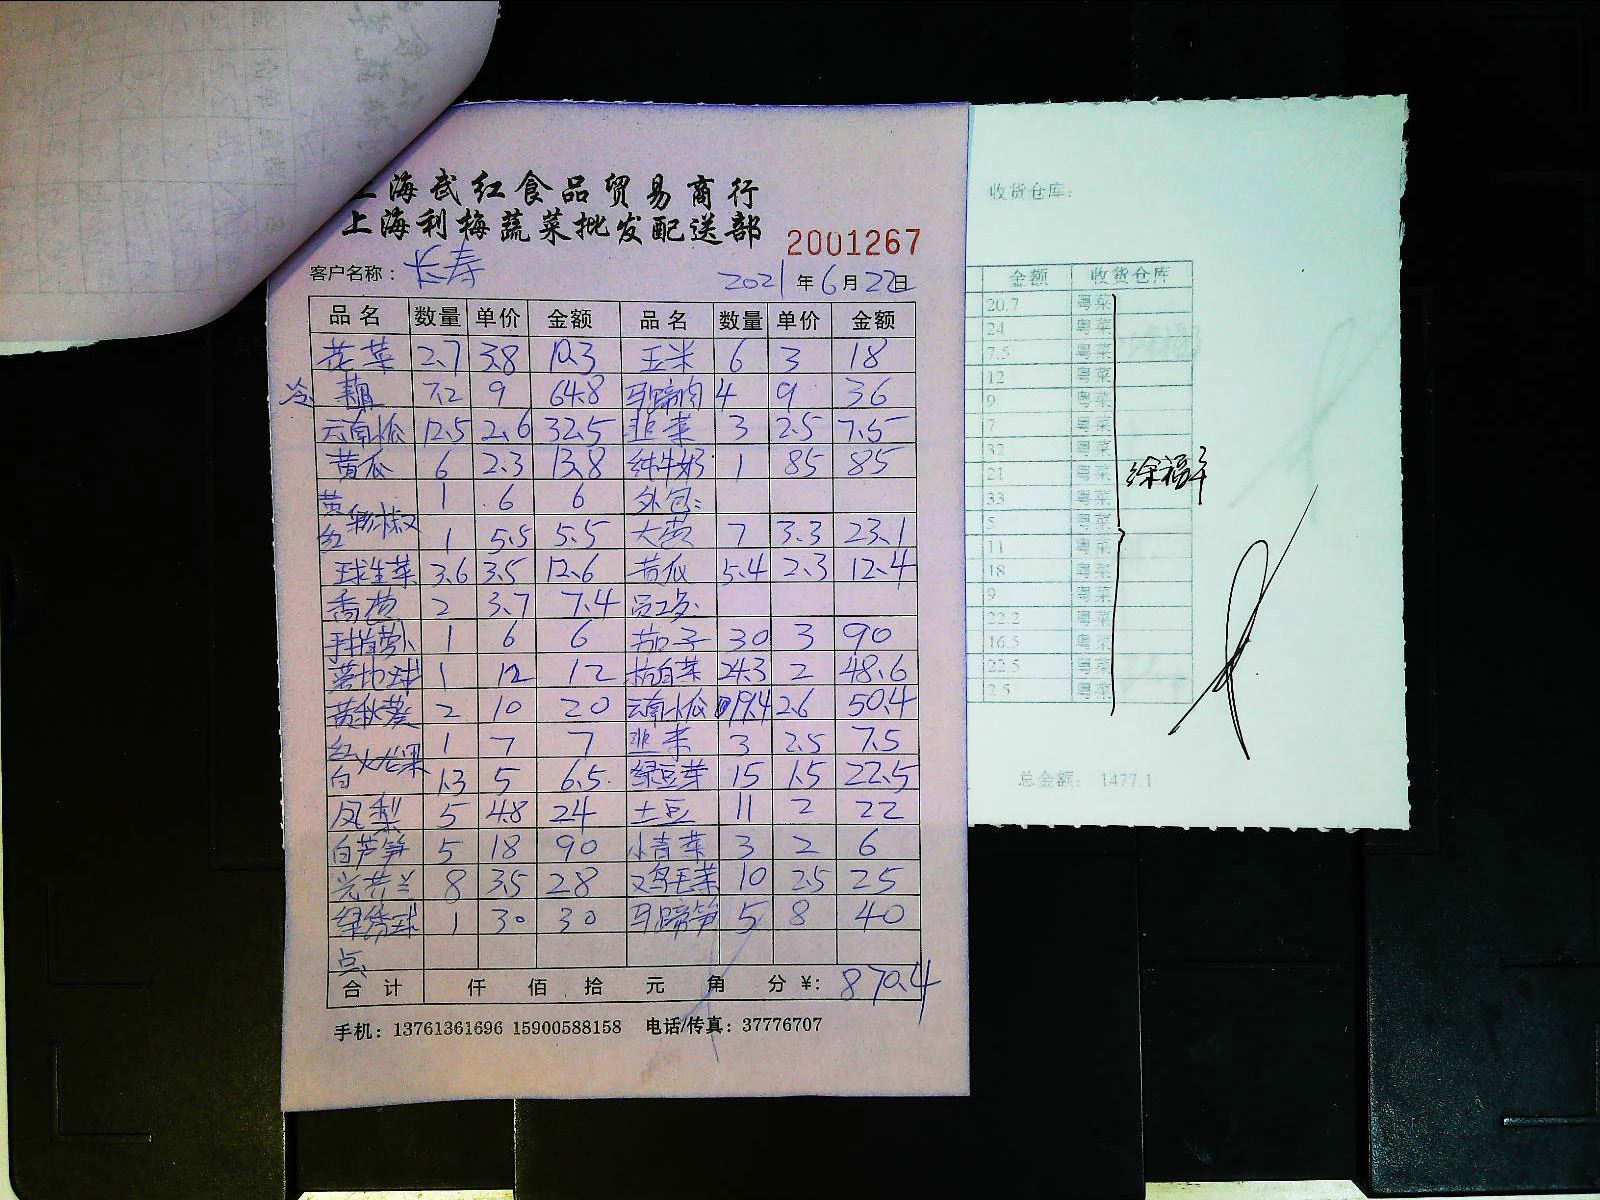 上海武红食品贸易商行
上海利梅蔬菜批发配送部
2001267
客户名称：长寿 2021年6月22日
品名 数量 单价 金额 品名 数量 单价 金额
花菜 2.7 3.8 10.3 玉米 6 3 18
冷 7.2 9 64.8 马蹄肉 4 9 36
云南小瓜 12.5 2.6 32.5 韭菜 3 2.5 7.5
黄瓜 6 2.3 13.8 纯牛奶 1 85 85
黄 彩椒 1 6 6 外包:
红 1 5.5 5.5 大黄 7 3.3 23.1
球生菜 3.6 3.5 12.6 黄瓜 5.4 2.3 12.4
香 2 3.7 7.4 员工:
手指萝卜 1 6 6 茄子 30 3 90
1 12 12 杭白菜 24.3 2 48.6
黄秋葵 2 10 20 云南小瓜 19.4 2.6 50.4
红 火龙果 1 7 7 韭菜 3 2.5 7.5
白 1.3 5 6.5 绿豆芽 15 1.5 22.5
凤梨 5 4.8 24 土豆 11 2 22
白芦笋 5 18 90 小青菜 3 2 6
8 3.5 28 鸡毛菜 10 2.5 25
绿绣球 1 30 30 马蹄笋 5 8 40
点
合计 仟 佰 拾 元 角 分 ¥: 870.4
手机：13761361696 15900588158 电话/传真：37776707
收货仓库:
金额 收货仓库
20.7 粤菜
24 粤菜
7.5 粤菜
12 粤菜
9 粤菜
7 粤菜
32 粤菜
21 粤菜
33 粤菜
5 粤菜
11 粤菜
18 粤菜
9 粤菜
22.2 粤菜
16.5 粤菜
22.5 粤菜
2.5 粤菜
总金额: 1477.1